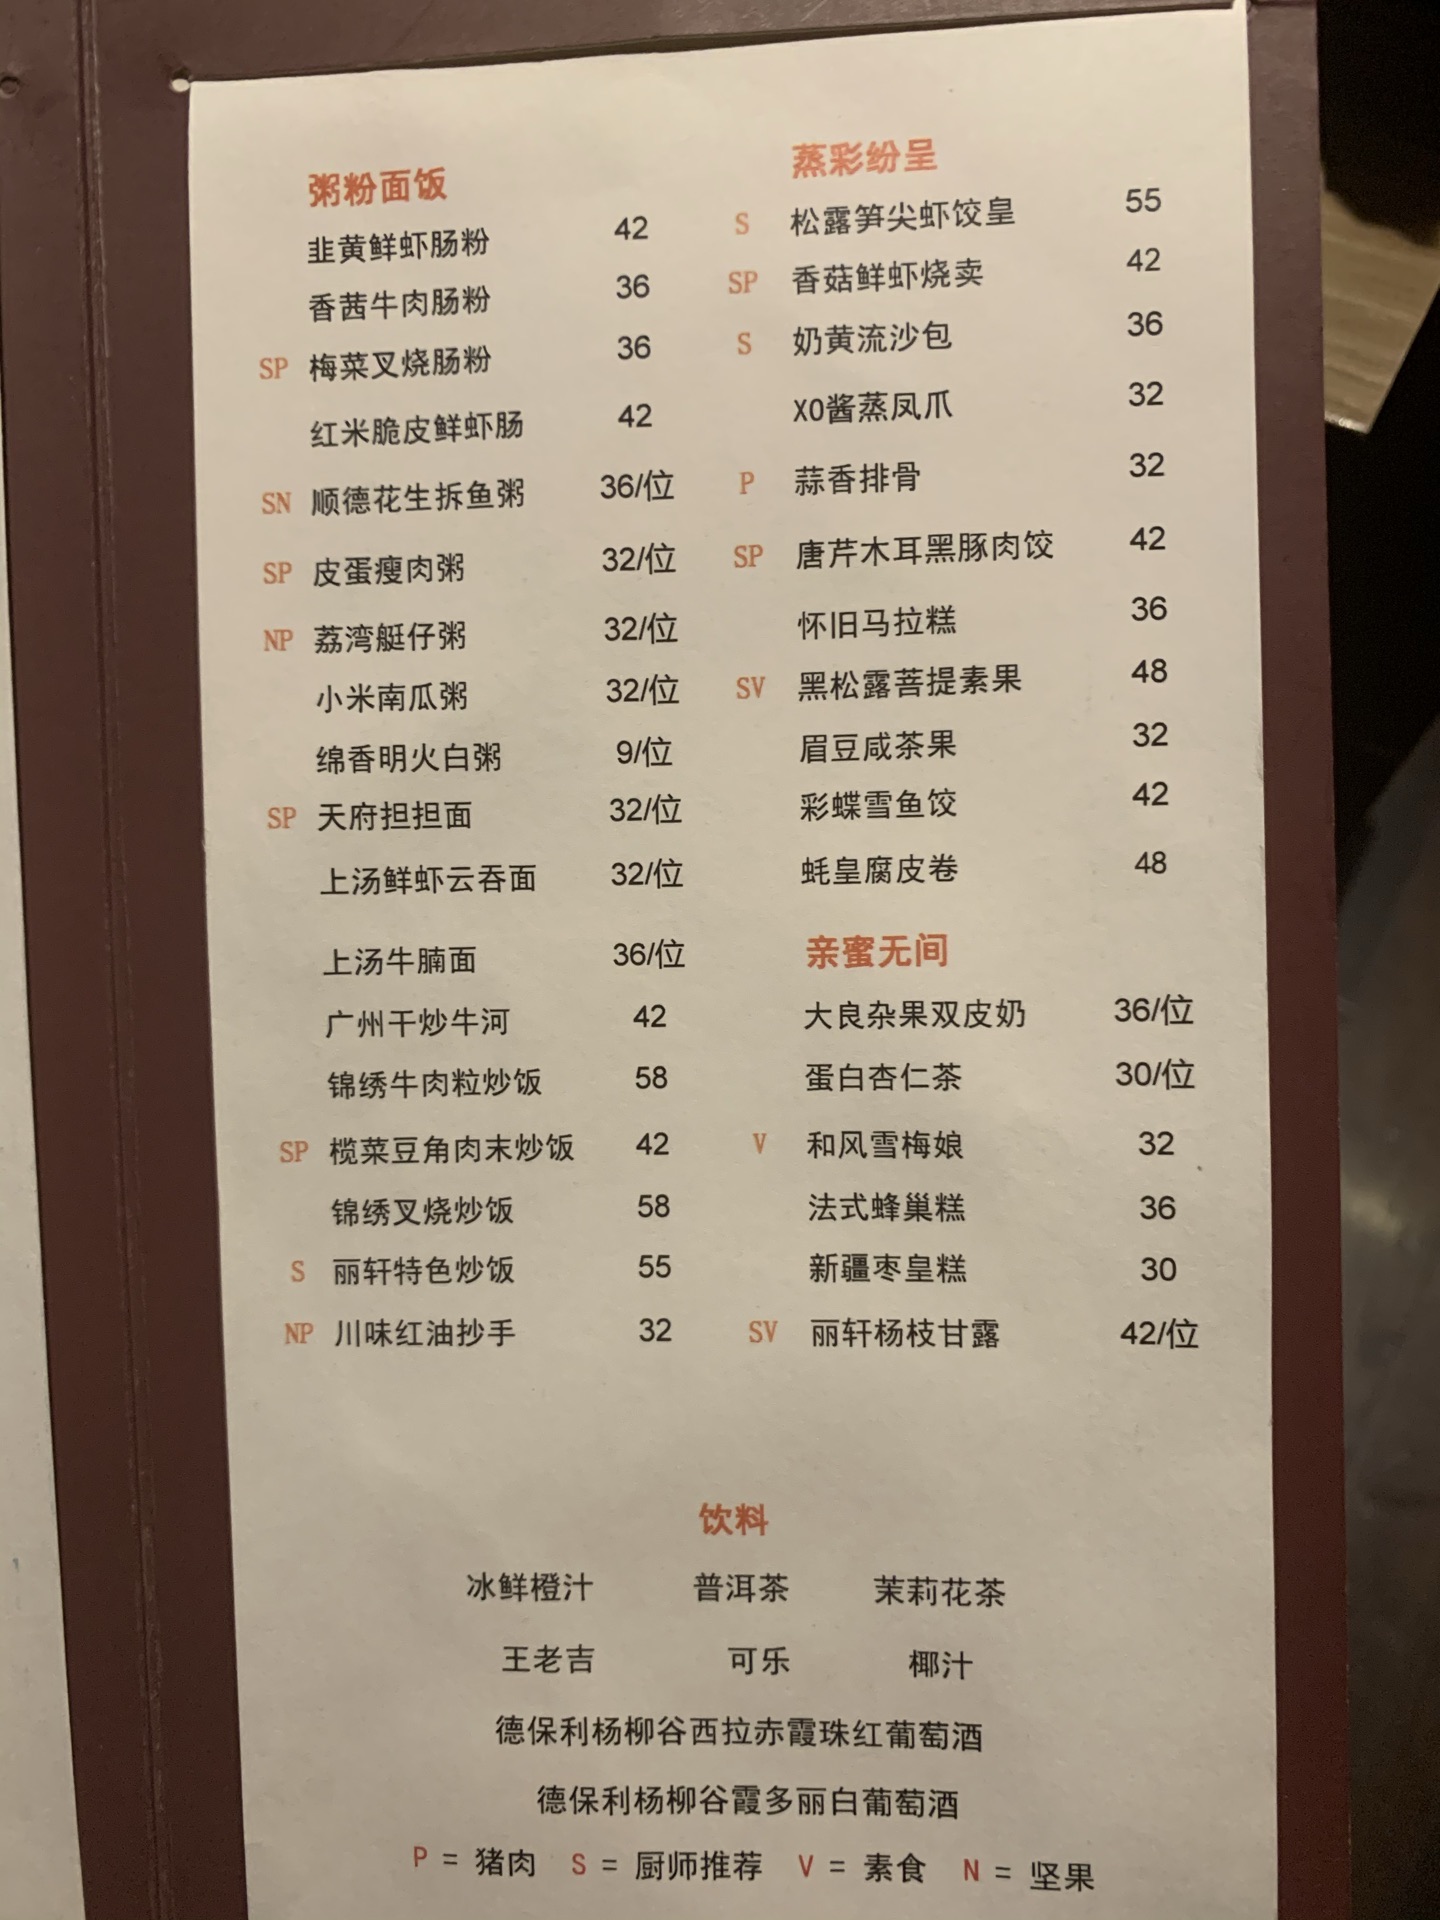 粥粉面饭
韭黄鲜虾肠粉 42
香茜牛肉肠粉 36
SP 梅菜叉烧肠粉 36
红米脆皮鲜虾肠 42
SN 顺德花生拆鱼粥 36/位
SP 皮蛋瘦肉粥 32/位
NP 荔湾艇仔粥 32/位
小米南瓜粥 32/位
绵香明火白粥 9/位
SP 天府担担面 32/位
上汤鲜虾云吞面 32/位
上汤牛腩面 36/位
广州干炒牛河 42
锦绣牛肉粒炒饭 58
SP 榄菜豆角肉末炒饭 42
锦绣叉烧炒饭 58
S 丽轩特色炒饭 55
NP 川味红油抄手 32
蒸彩纷呈
S 松露笋尖虾饺皇 55
SP 香菇鲜虾烧卖 42
S 奶黄流沙包 36
XO酱蒸凤爪 32
P 蒜香排骨 32
SP 唐芹木耳黑豚肉饺 42
怀旧马拉糕 36
SV 黑松露菩提素果 48
眉豆咸茶果 32
彩蝶雪鱼饺 42
蚝皇腐皮卷 48
亲蜜无间
大良杂果双皮奶 36/位
蛋白杏仁茶 30/位
V 和风雪梅娘 32
法式蜂巢糕 36
新疆枣皇糕 30
SV 丽轩杨枝甘露 42/位
饮料
冰鲜橙汁 普洱茶 茉莉花茶
王老吉 可乐 椰汁
德保利杨柳谷西拉赤霞珠红葡萄酒
德保利杨柳谷霞多丽白葡萄酒
P = 猪肉 S = 厨师推荐 V = 素食 N = 坚果